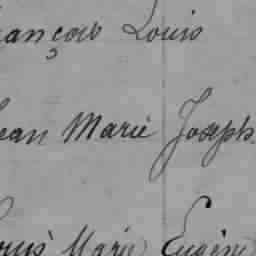 ançois Louis
ean Marie Joseph
ouis Marie Eugène